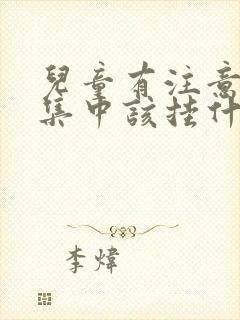 兒童有注意
集中該挂什
李煒